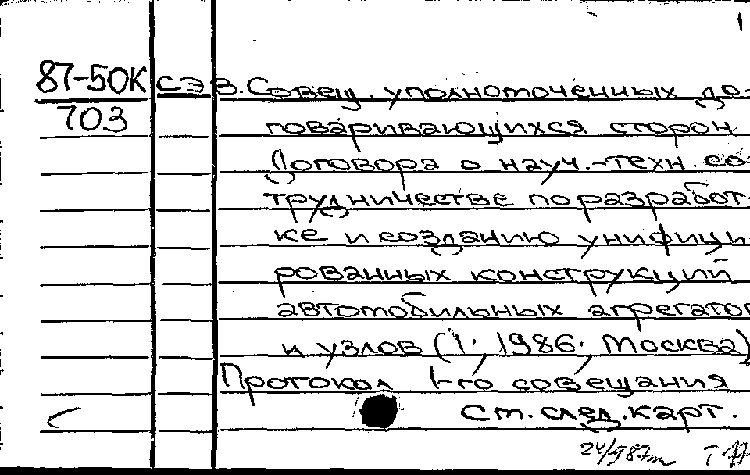 1
87-50К СЭВ. Совещ. уполномоченных до-
703 говаривающихся сторон
Договора о науч.-техн. со-
трудничестве по разработ-
ке и созданию унифици-
рованных конструкций
автомобильных агрегатов
и узлов (1; 1986; Москва)
Протокол 1-го совещания
См. след. карт.